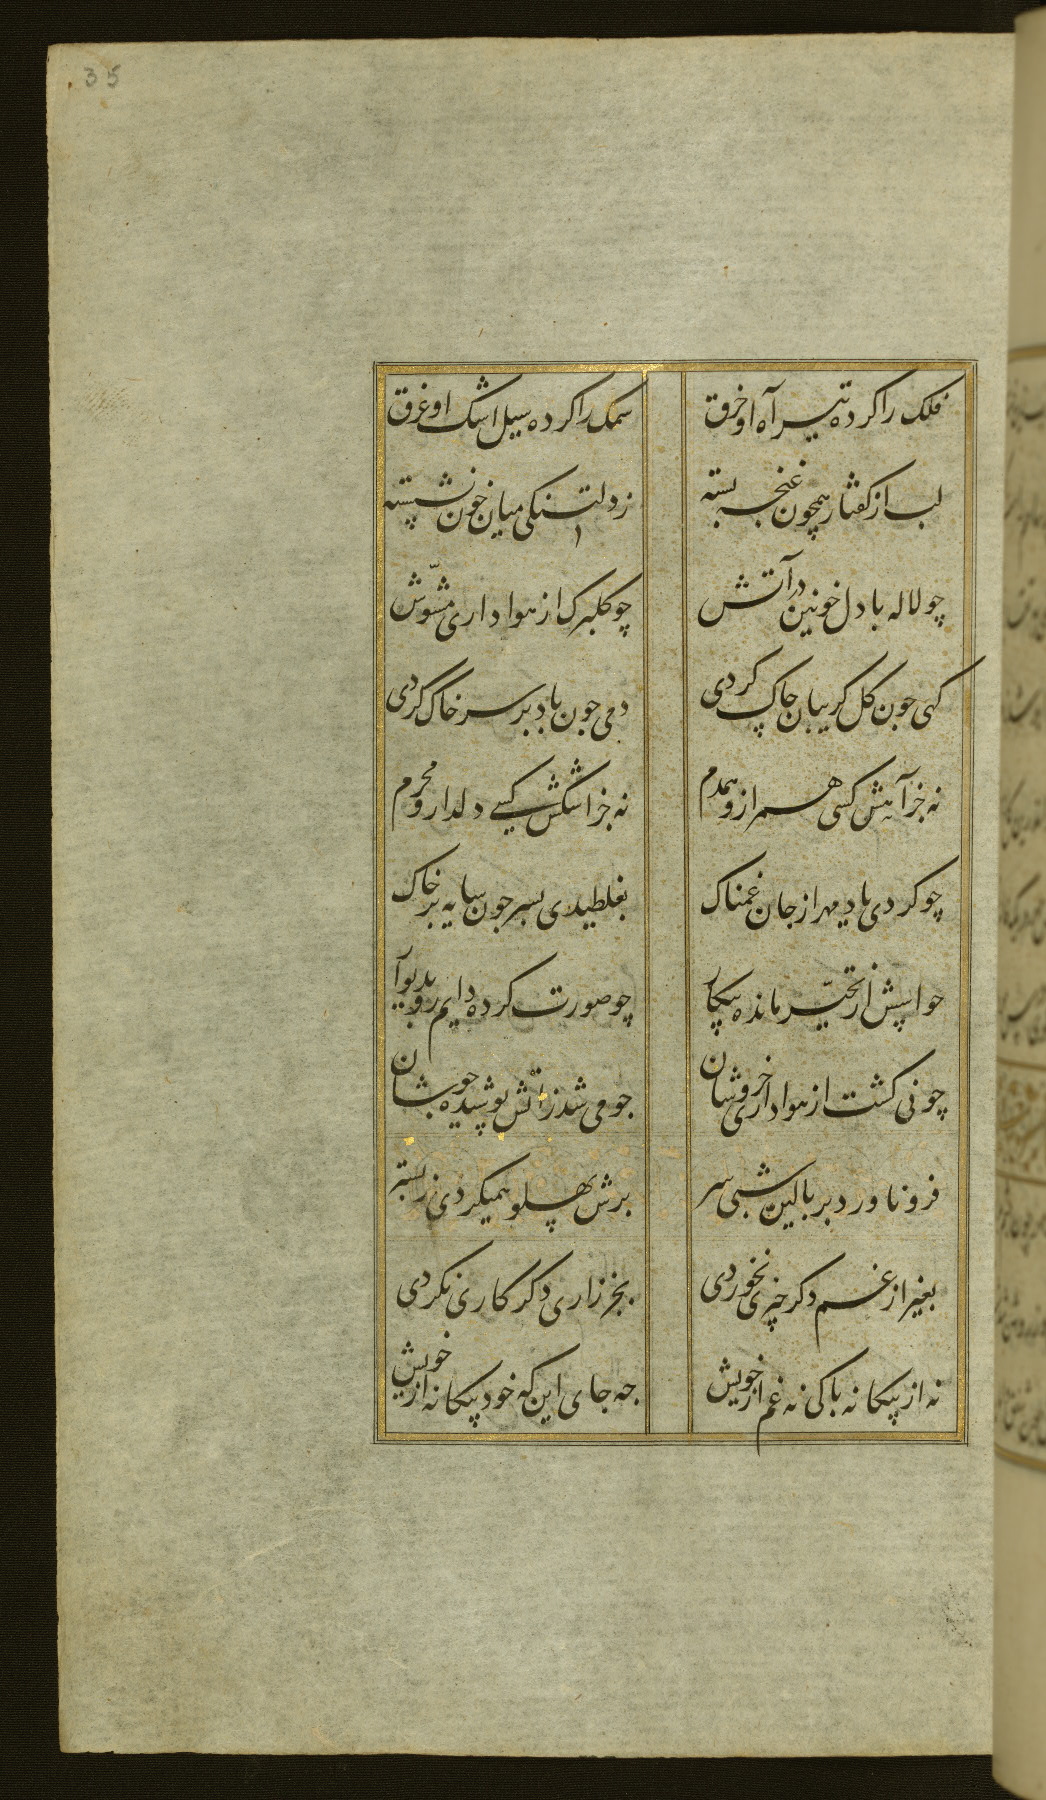 35
فلک را کرده تیر آه او خرق
سمک را کرده سیل اشک او غرق
لب از کفتار همچون غنچه بسته
ز دلتنکی میان خون نشسته
چو لاله با دل خونین در آتش
چو کلبرک از هواداری مشوّش
کهی جون کل کریبان چاک کردی
دمی جون باد بر سر خاک کردی
نه جز آهش کسی همراز و همدم
نه جز اشکش کسی دلدار و محرم
چو کردی یاد مهر از جان غمناک
بغلطیدی بسر جون سایه بر خاک
حواسش از تحیّر مانده بیکار
چو صورت کرده دایم رو بدیوار
چو نی کشت از هواداری خروشان
جو می شد ز آتش پوشیده جوشان
فرو ناورد بر بالین شبی سر
برش پهلو همیکردی ز بستر
بغیر از غم دکر چیزی نخوردی
بجز زاری دکر کاری نکردی
نه از بیکانه باکی نه غم از خویش
چه جای این که خود بیکانه از خویش